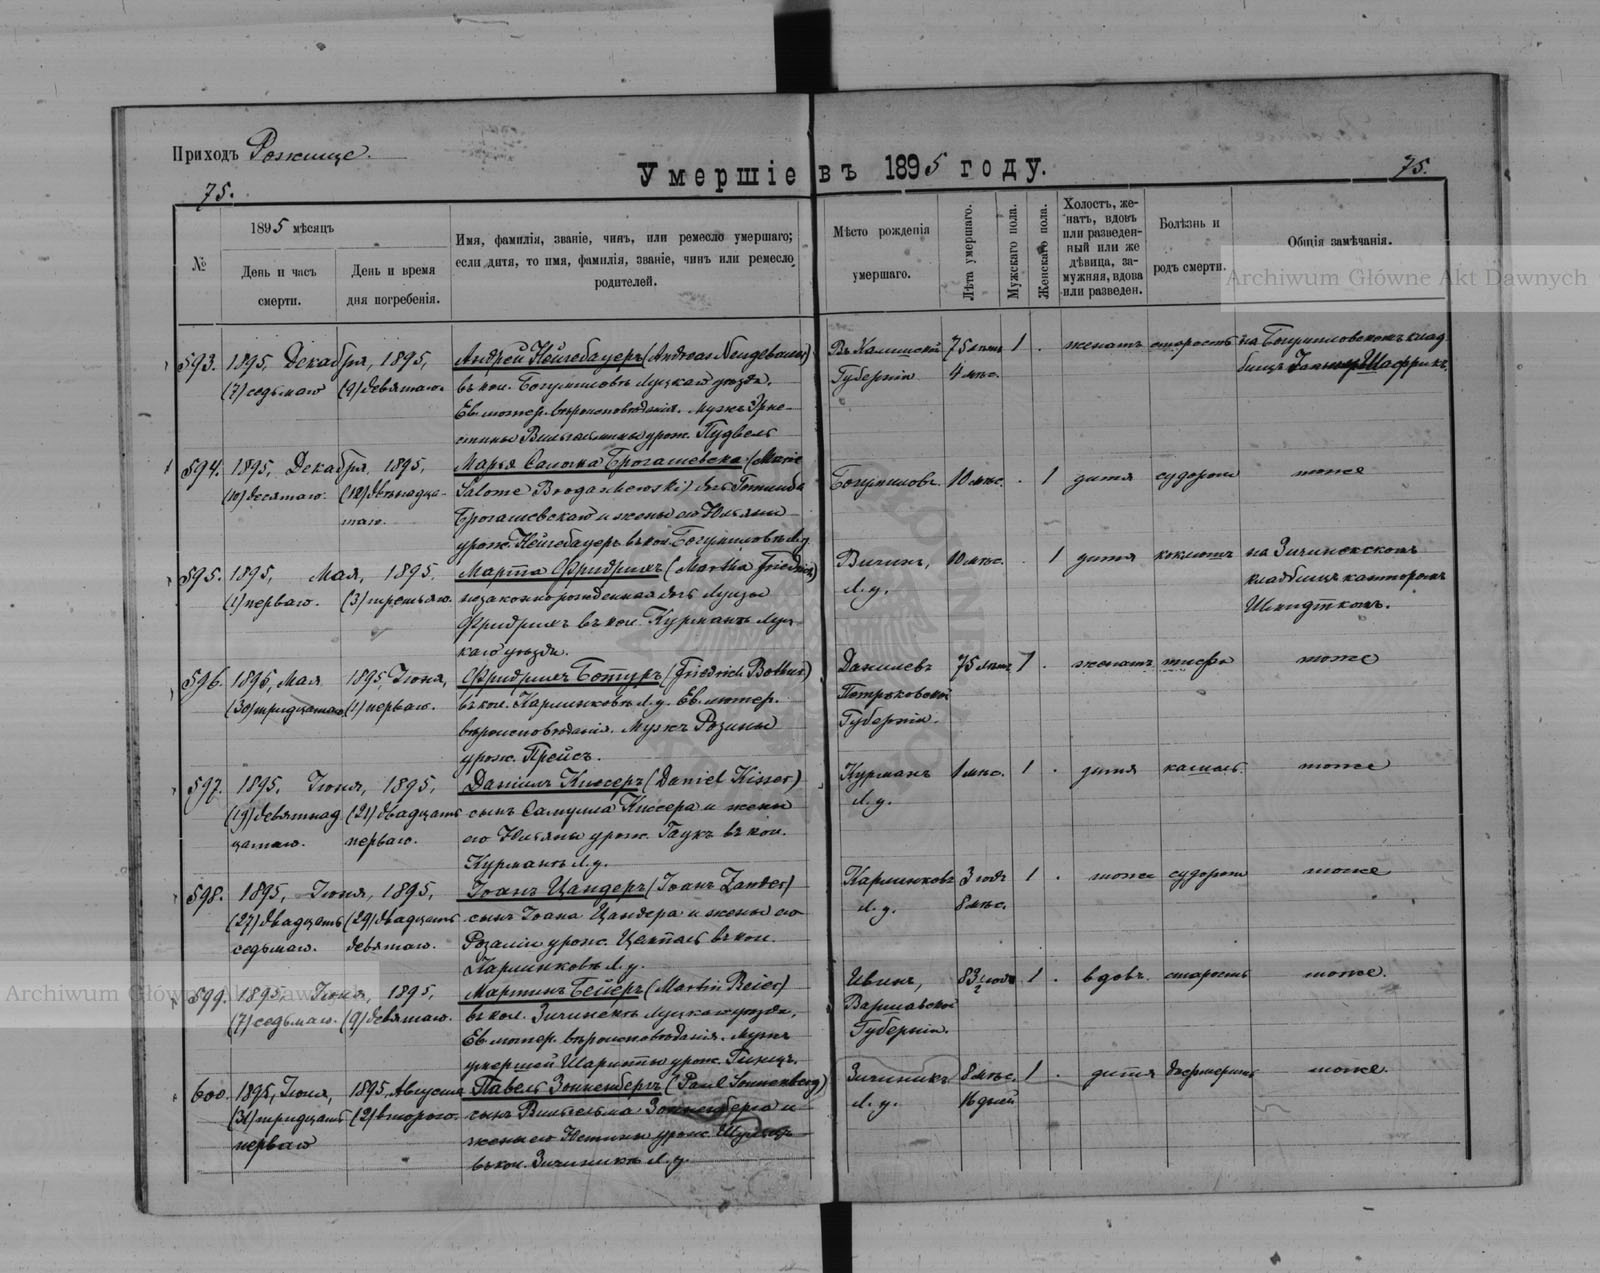 Приходъ Рожище.
Умершіе въ 1895 году.
75.
75.
№
1895 мѣсяцъ
День и часъ смерти.
День и время дня погребенія.
Имя, фамилія, званіе, чинъ, или ремесло умершаго;
если дитя, то имя, фамилія, званіе, чинъ или ремесло
родителей.
Мѣсто рожденія
умершаго.
Лѣта умершаго.
Мужскаго пола.
Женскаго пола.
Холостъ, же-
натъ, вдовъ
или разведен-
ный или же
дѣвица, за-
мужняя, вдова
или разведен.
Болѣзнь и
родъ смерти.
Общія замѣчанія.
Archiwum Główne Akt Dawnych
593. 1895, Декабря, 1895, Андрей Нейгебауеръ (Andreas Neugebauer) Въ Калишской 75 лѣтъ 1 . женатъ старость на Богумиловскомъ клад
(7) седьмаго (9) девятаго. въ кол. Богумиловъ Луцкаго уѣзда. Губерніи 4 мѣс. бищѣ
Ев. лютер. вѣроисповѣданія. Мужъ Эрне-
стины Вильгельмины урож. Пудвель
594. 1895, Декабря, 1895, Марья Салома Брогашевска (Marie
(10) десятаго. (12) двѣнадца- Salome Brogaschewski) дочь Готлиба Богумиловъ. 10 мѣс. . 1 дитя судороги тоже
таго. Брогашевскаго и жены его Юльяны
урож. Нейгебауеръ въ кол. Богумиловъ Л.у.
595. 1895, Мая, 1895, Марта Фридрихъ (Martha Friedrich) 10 мѣс. . 1 дитя коклюшъ на
(1) перваго. (3) третьяго. незаконнорожденная дочь Луизы Л. у. кладбищѣ канторомъ
Фридрихъ въ кол. Курманъ Луц- Шмидткомъ.
каго уѣзда.
596. 1895, Мая 1895, Іюня, Фридрихъ Ботнеръ (Friedrich 75 лѣтъ 1 . женатъ тифъ тоже
(30) тридцатаго (1) перваго. въ кол. Л.у. Ев. лютер. Петроковской
вѣроисповѣданія. Мужъ Розины Губерніи.
урож. Прейсъ.
597. 1895, Іюня, 1895, Даніилъ Киссеръ (Daniel Kisser) Курманъ 1 мѣс. 1 . дитя кашель тоже
(19) девятнад (21) двадцать сынъ Самуила Киссера и жены Л. у.
цатаго. перваго. его Юльяны урож. Гаукъ въ кол.
Курманъ Л.у.
598. 1895, Іюня, 1895, Іоанъ Цандеръ (Іоанъ Zander) 3 года 1 . тоже судороги тоже
(27) двадцать (29) двадцать сынъ Іоана Цандера и жены его Л. у. 8 мѣс.
седьмаго. девятаго. Розаліи урож. въ кол.
Л.у.
Archiwum Główne Akt Dawnych
599. 1895, Іюня, 1895, Мартинъ Бейеръ (Martin Beier) 83½ года 1 . вдовъ старость тоже.
(7) седьмаго. (9) девятаго. въ кол. Луцкаго уѣзда, Варшавской
Ев. лютер. вѣроисповѣданія. Мужъ Губерніи.
умершей урож. Гинцъ.
600. 1895, Іюля, 1895, Августа Павелъ Зонненбергъ (Paul Sonnenberg) 8 мѣс. 1 . дитя тоже.
(31) тридцать (2) втораго. сынъ Вильгельма Зонненберга и Л. у. 16 дней
перваго жены его Юстины урож. Шульцъ
въ кол. Л.у.